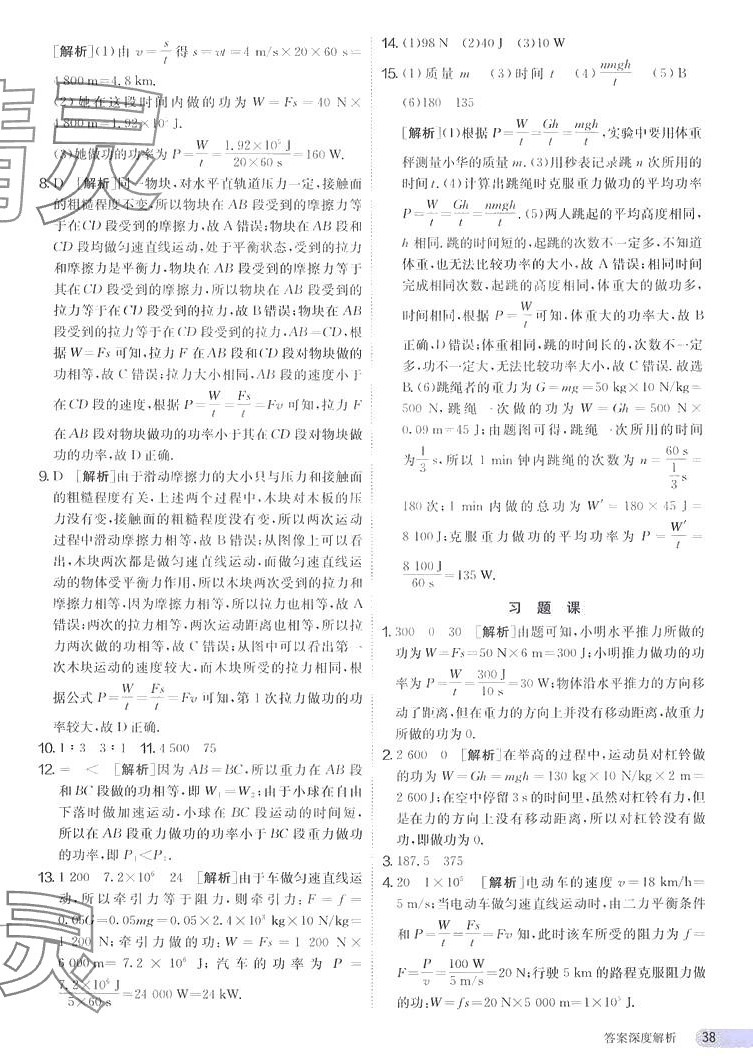 [解析](1)由 v=s/t 得 s=vt=4 m/s×20×60 s=
4 800 m=4.8 km.
(2)她在这段时间内做的功为 W=Fs=40 N×
4 800 m=1.92×10⁵ J.
(3)她做功的功率为 P=W/t=1.92×10⁵ J/20×60 s=160 W.
8. D [解析]同一物块,对水平直轨道压力一定,接触面
的粗糙程度不变,所以物块在 AB 段受到的摩擦力等
于在 CD 段受到的摩擦力,故 A 错误;物块在 AB 段和
CD 段均做匀速直线运动,处于平衡状态,受到的拉力
和摩擦力是平衡力,物块在 AB 段受到的摩擦力等于
其在 CD 段受到的摩擦力,所以物块在 AB 段受到的
拉力等于在 CD 段受到的拉力,故 B 错误;物块在 AB
段受到的拉力等于在 CD 段受到的拉力,AB=CD,根
据 W=Fs 可知,拉力 F 在 AB 段和 CD 段对物块做的
功相等,故 C 错误;拉力大小相同,AB 段的速度小于
在 CD 段的速度,根据 P=W/t=Fs/t=Fv 可知,拉力 F
在 AB 段对物块做功的功率小于其在 CD 段对物块做
功的功率,故 D 正确.
9. D [解析]由于滑动摩擦力的大小只与压力和接触面
的粗糙程度有关,上述两个过程中,木块对木板的压
力没有变,接触面的粗糙程度没有变,所以两次运动
过程中滑动摩擦力相等,故 B 错误;从图像上可以看
出,木块两次都是做匀速直线运动,而做匀速直线运
动的物体受平衡力作用,所以木块两次受到的拉力和
摩擦力相等,因为摩擦力相等,所以拉力也相等,故 A
错误;两次的拉力相等,两次运动距离也相等,所以拉
力两次做的功相等,故 C 错误;从图中可以看出第一
次木块运动的速度较大,而木块所受的拉力相同,根
据公式 P=W/t=Fs/t=Fv 可知,第 1 次拉力做功的功
率较大,故 D 正确.
10. 1∶3 3∶1 11. 4 500 75
12. = < [解析]因为 AB=BC,所以重力在 AB 段
和 BC 段做的功相等,即 W₁=W₂;由于小球在自由
下落时做加速运动,小球在 BC 段运动的时间短,
所以在 AB 段重力做功的功率小于 BC 段重力做功
的功率,即 P₁<P₂.
13. 1 200 7.2×10⁶ 24 [解析]由于车做匀速直线运
动,所以牵引力等于阻力,则牵引力:F=f=
0.05G=0.05mg=0.05×2.4×10³ kg×10 N/kg=
1 200 N;牵引力做的功:W=Fs=1 200 N×
6 000 m=7.2×10⁶ J;汽车的功率为 P=
7.2×10⁶ J/5×60 s=24 000 W=24 kW.
14. (1)98 N (2)40 J (3)10 W
15. (1)质量 m (3)时间 t (4)nmgh/t (5)B
(6)180 135
[解析](1)根据 P=W/t=Gh/t=mgh/t,实验中要用体重
秤测量小华的质量 m.(3)用秒表记录跳 n 次所用的
时间 t.(4)计算出跳绳时克服重力做功的平均功率
P=W/t=Gh/t=nmgh/t.(5)两人跳起的平均高度相同,
h 相同.跳的时间短的,起跳的次数不一定多,不知道
体重,也无法比较功率的大小,故 A 错误;相同时间
完成相同次数,起跳的高度相同,体重大的做功多,
时间相同,根据 P=W/t 可知,体重大的功率大,故 B
正确,D 错误;体重相同,跳的时间长的,次数不一定
多,功不一定大,无法比较功率大小,故 C 错误.故选
B.(6)跳绳者的重力为 G=mg=50 kg×10 N/kg=
500 N,跳绳一次做的功为 W=Gh=500 N×
0.09 m=45 J;由题图可得,跳绳一次所用的时间
为 1/3 s,所以 1 min 钟内跳绳的次数为 n=60 s/(1/3 s)=
180 次;1 min 内做的总功为 W′=180×45 J=
8 100 J;克服重力做功的平均功率为 P=W′/t=
8 100 J/60 s=135 W.
习 题 课
1. 300 0 30 [解析]由题可知,小明水平推力所做的
功为 W=Fs=50 N×6 m=300 J;小明推力做功的功
率为 P=W/t=300 J/10 s=30 W;物体沿水平推力的方向移
动了距离,但在重力的方向上并没有移动距离,故重力
所做的功为 0.
2. 2 600 0 [解析]在举高的过程中,运动员对杠铃做
的功为 W=Gh=mgh=130 kg×10 N/kg×2 m=
2 600 J;在空中停留 3 s 的时间里,虽然对杠铃有力,但
是在力的方向上没有移动距离,所以对杠铃没有做
功,即做功为 0.
3. 187.5 375
4. 20 1×10⁵ [解析]电动车的速度 v=18 km/h=
5 m/s;当电动车做匀速直线运动时,由二力平衡条件
和 P=W/t=Fs/t=Fv 知,此时该车所受的阻力为 f=
F=P/v=100 W/5 m/s=20 N;行驶 5 km 的路程克服阻力做
的功:W=fs=20 N×5 000 m=1×10⁵ J.
答案深度解析 38
精灵
灵